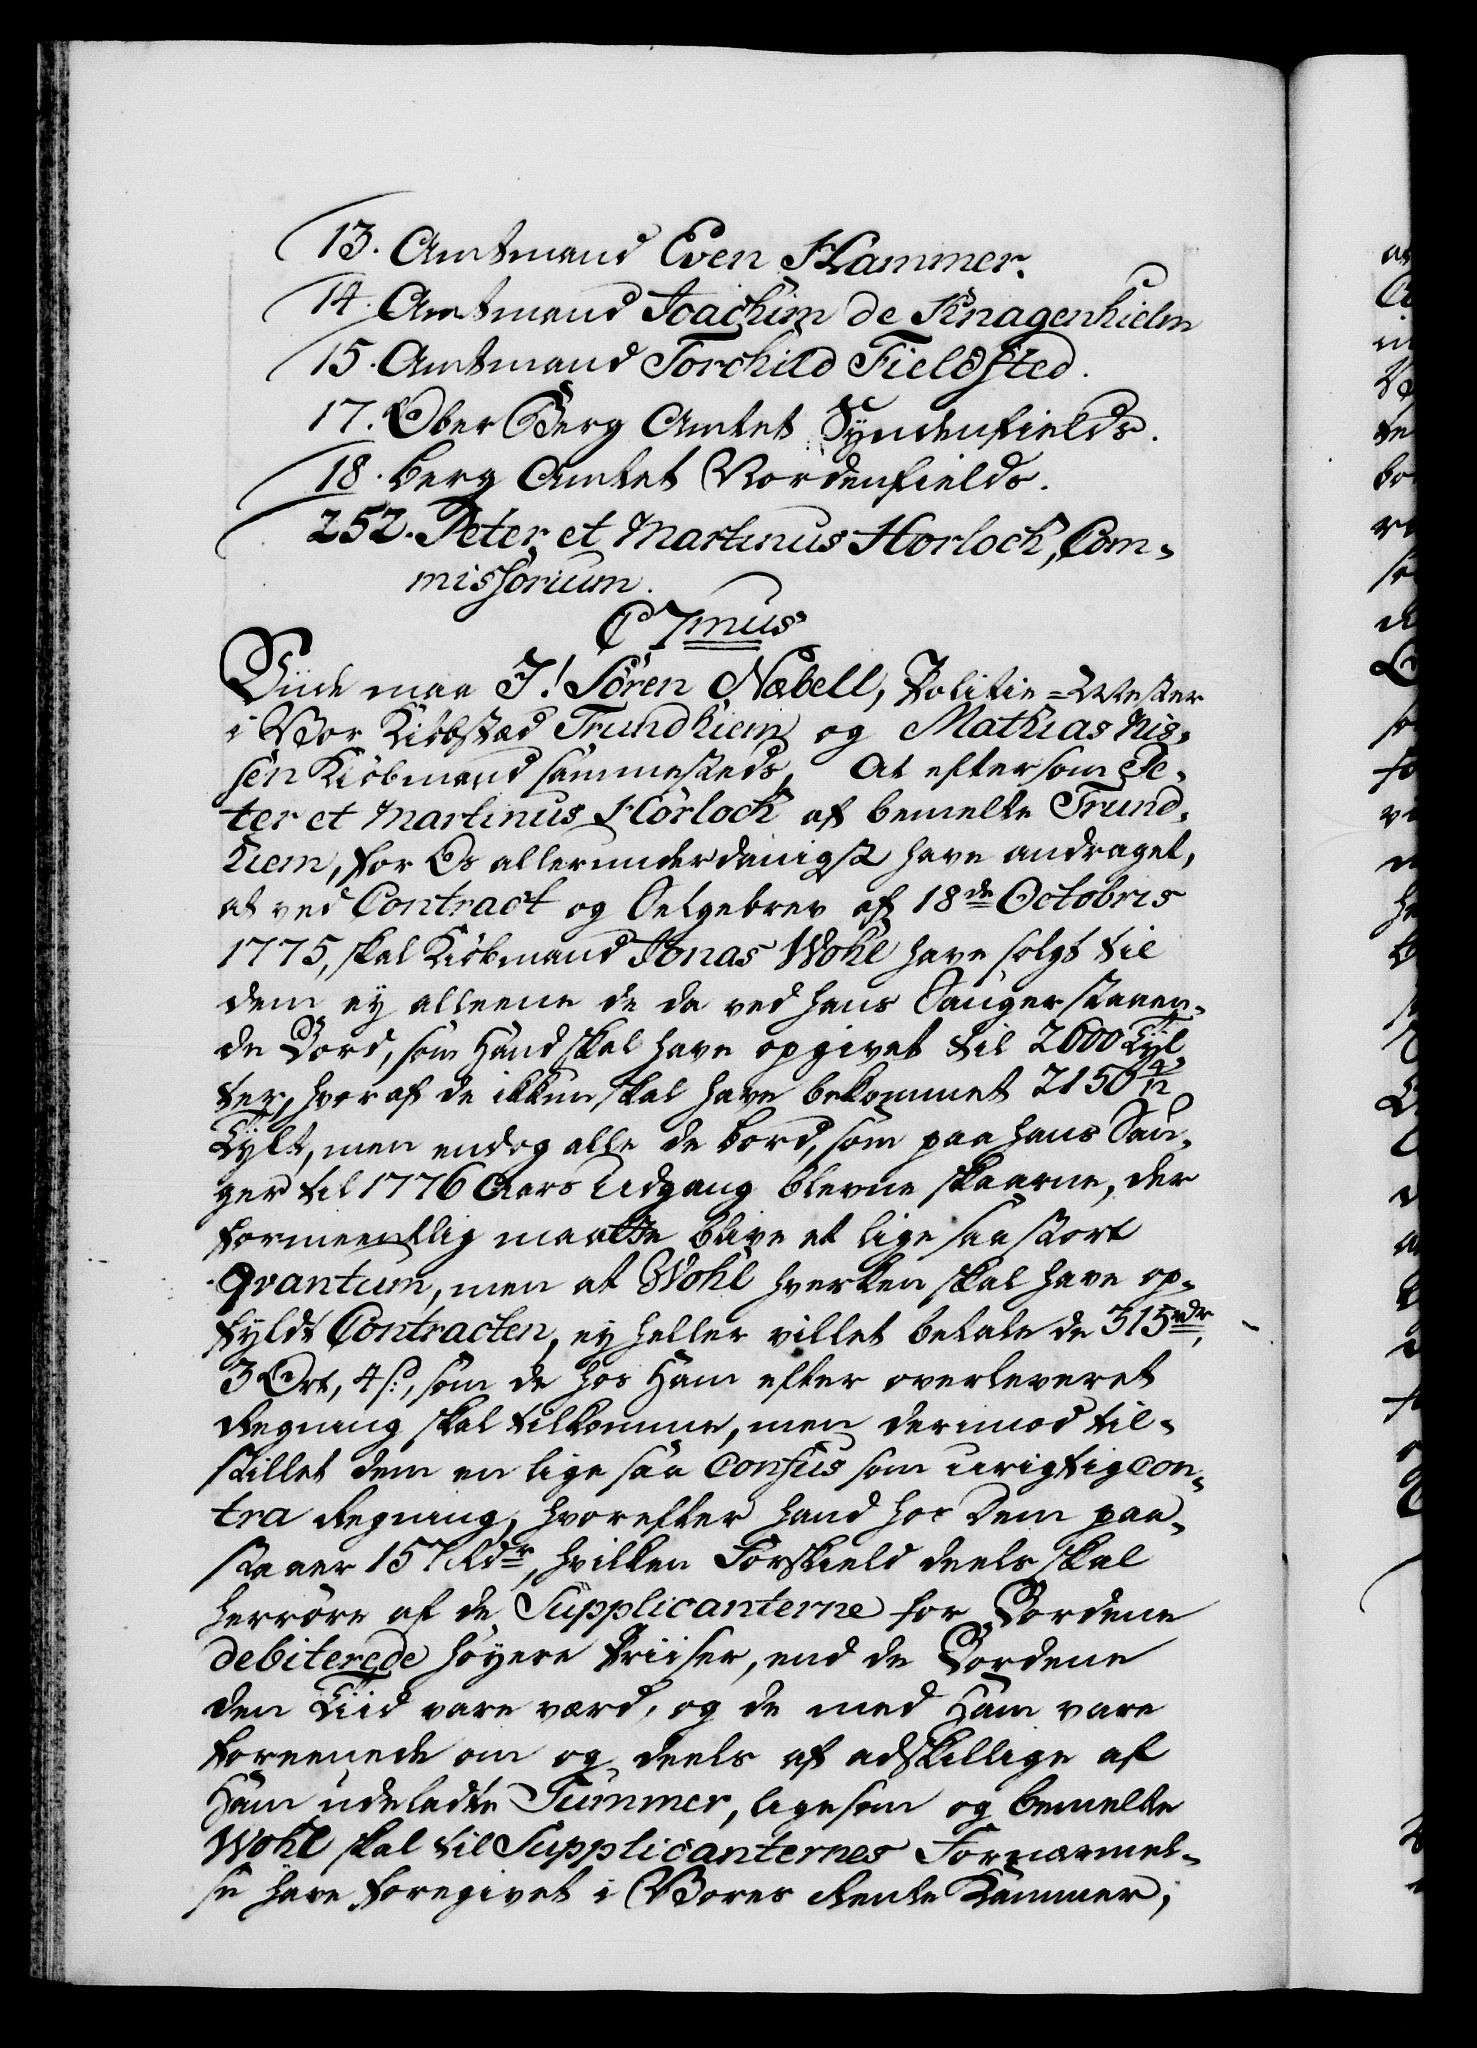 13. Amtmand Even Hammer.
14. Amtmand Joachim de Knagenhielm
15. Amtmand Torchild Fieldsted.
17. Ober Berg Amtet Syndenfields.
18. Berg Amtet Nordenfields.
252. Peter et Martinus Horlock, Com-
missorium.
C 7mus
Viide maa I! Sören Næbell, Politie=Mester
i Vor Kiöbstæd Trundhiem og Mathias Nis-
sen Kiöbmand sammesteds, At eftersom Pe-
ter et Martinus Hörlock af bemelte Trund-
hiem, for Os allerunderdanigst have andraget,
at ved Contract og Selgebrev af 18de Octobris
1775, skal Kiöbmand Jonas Wohl have solgt til
dem ey alleene de da ved hans Sauger staaen-
de Bord, som Hand skal have opgivet til 2600 Tyl-
ter, hvoraf de ikkun skal have bekommet 2150
Tylt, men endog alle de bord, som paa hans Sau-
ger til 1776 Aars Udgang blevne skaarne, der
formeentlig maatte blive et lige saa stort
Qvantum, men at Wohl hverken skal have op-
fyldt Contracten, ey heller villet betale de 315 rdr,
3 Ort, 4 s:, som de hos Ham efter overleveret
Regning skal tilkomme, men derimod til-
stillet dem en lige saa Confus som urigtig Con-
tra Regning, hvorefter hand hos dem paa-
staaer 157 Rdr, hvilken Forskield deels skal
herröre af de Supplicanterne for Bordene
debiterede höyere Priiser, end de Bordene
den Tiid vare værd, og de med Ham vare
foreenede om og deels af adskillige af
Ham udeladte Summer, ligesom og bemelte
Wohl skal til Supplicanternes Fornærmel-
se have foregivet i Vores Rente Kammer,